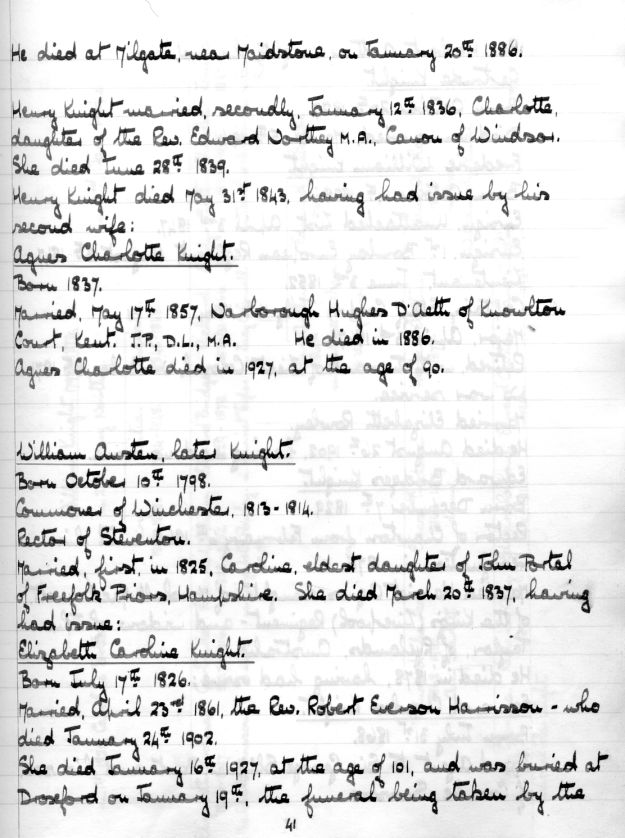 He died at Milgate, near Maidstone, on January 20th 1886.
Henry Knight married, secondly, January 12th 1836, Charlotte,
daughter of the Rev. Edward Northey M.A., Canon of Windsor.
She died June 28th 1839.
Henry Knight died May 31st 1843, having had issue by his
second wife:
Agnes Charlotte Knight.
Born 1837.
Married, May 17th 1857, Narborough Hughes D'Aeth of Knowlton
Court, Kent. J.P., D.L., M.A. He died in 1886.
Agnes Charlotte died in 1927, at the age of 90.
William Austen, later Knight.
Born October 10th 1798.
Commoner of Winchester, 1813-1814.
Rector of Steventon.
Married, first, in 1825, Caroline, eldest daughter of John Portal
of Freefolk Priors, Hampshire. She died March 20th 1837, having
had issue:
Elizabeth Caroline Knight.
Born July 17th 1826.
Married, April 23rd 1861, the Rev. Robert Everson Harrisson - who
died January 24th 1902.
She died January 16th 1927, at the age of 101, and was buried at
Droxford on January 19th, the funeral being taken by the
41